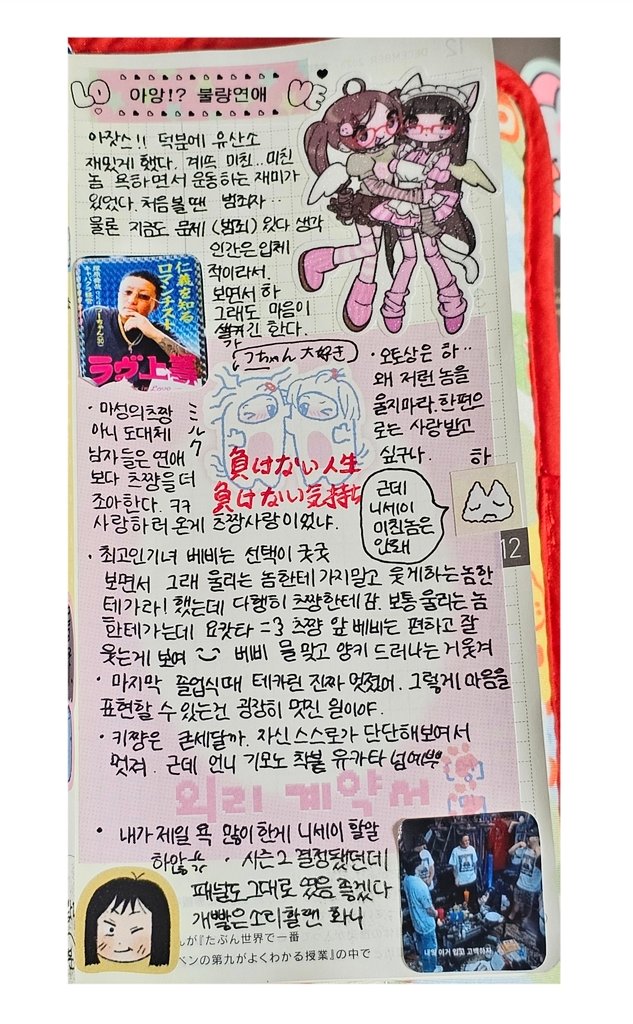 LOVE
아앙!? 불량연애
아잣스!! 덕분에 유산소
재밌게 했다. 계뜩 미친.. 미친
놈 욕하면서 운동하는 재미가
있었다. 처음볼땐 범죄자..
물론 지금도 문제 (범죄) 있다 생각
인간은 입체
적이라서.
보면서 하
그래도 마음이
생긴 한다.
仁義を知る
ロマンチスト
ラヴ上等
つちゃん大好き
· 오토상은 하..
왜 저런 놈을
울지마라. 한편으
로는 사랑받고
싶구나. 하
· 마성의츠쨩
아니 도대체
남자들은 연애
보다 츠쨩을 더
조아한다. ㅋㅋ
사랑하러 온게 츠쨩사랑이었냐.
ミルク
負けない人生
負けない気持ち
근데
니세이
미친놈은
안돼
12
· 최고인기녀 베비는 선택이 굿굿
보면서 그래 울리는 놈한테 가지말고 웃게하는놈한
테가라! 했는데 다행히 츠쨩한테 감. 보통 울리는 놈
한테가는데 요캇타 =3 츠쨩 앞 베비는 편하고 잘
웃는게 보여 베비 물 맞고 양키 드러나는 거 웃겨
· 마지막 졸업식때 테카린 진짜 멋졌어. 그렇게 마음을
표현할 수 있는건 굉장히 멋진 일이야.
· 키쨩은 큰세달까. 자신스스로가 단단해보여서
멋져. 근데 언니 기모노 착붙 유카타 넘예뿌
의리 계약서
· 내가 제일 욕 많이한게 니세이 할말
하않 · 시즌 2 결정됐던데
패널도 그대로 였음 좋겠다
개빻은소리할땐 화나
내일 이거 입고 고백하자
んが『たぶん世界で一番
ベンの第九がよくわかる授業』の中で